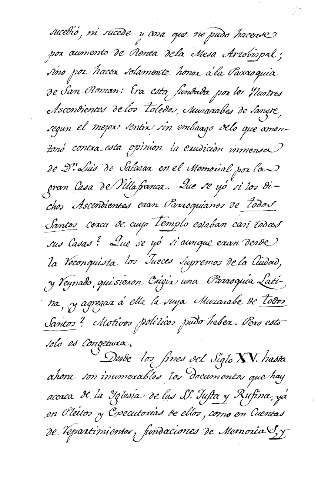 sucedió, ni sucede y cosa que no pudo hacerse
por aumento de Renta de la Mesa Arzobispal;
sino por hacer solamente honor á la Parroquia
de San Roman: Era esta fundada por los Ilustres
Ascendientes de los Toledos, Muzarabes de Sangre,
segun el mejor sentir sin embargo de lo que amon-
tonó contra esta opinion la erudicion inmensa
de Dn. Luis de Salazar en el Memorial por la
gran Casa de Villafranca. Que se yó si los di-
chos Ascendientes eran Parroquianos de todos
Santos cerca de cuyo templo estaban casi todas
sus Casas? Que se yó si aunque eran desde
la reconquista los Jueces Supremos de la Ciudad,
y Reynado, quisieron Erigir una Parroquia Lati-
na, y agregar á ella la suya Muzarabe de todos
Santos? Motivos politicos pudo haber. Pero esto
solo es congetura.
Desde los fines del Siglo XV. hasta
ahora son inumerables los documentos que hay
acerca de la Iglesia de las Sts. Justa y Rufina, yá
en Pleitos y Executorias de ellos, como en Cuentas
de repartimientos, fundaciones de Memorias, y